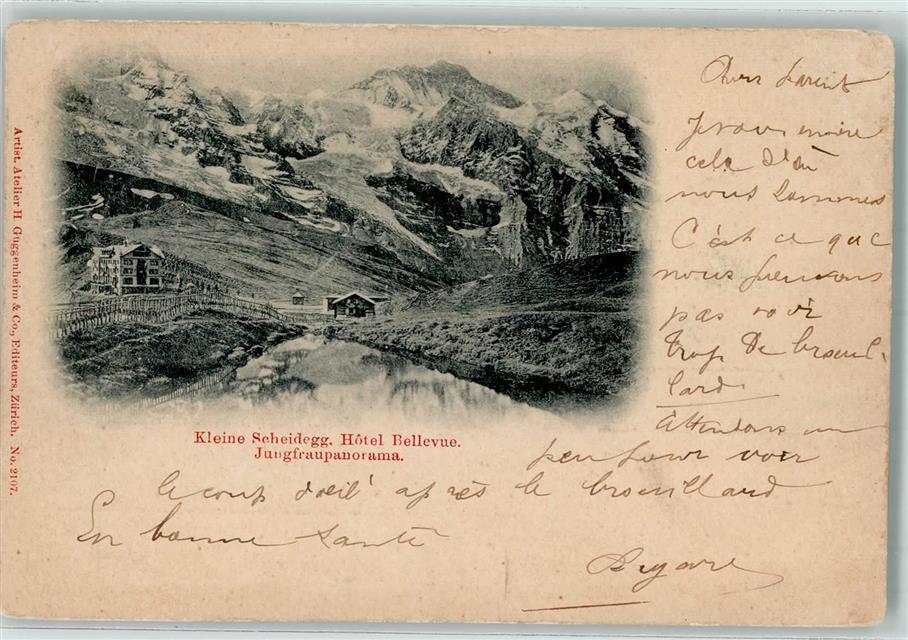 Artist. Atelier H. Guggenheim & Co., Editeurs, Zürich. No. 2107.
Kleine Scheidegg. Hôtel Bellevue.
Jungfraupanorama.
Je vous
cela d'où
nous sommes
C'est ce que
nous pensons
pas voir
trop de brouil-
lard
Attendons un
peu pour voir
le coup d'oeil après le brouillard
En bonne santé